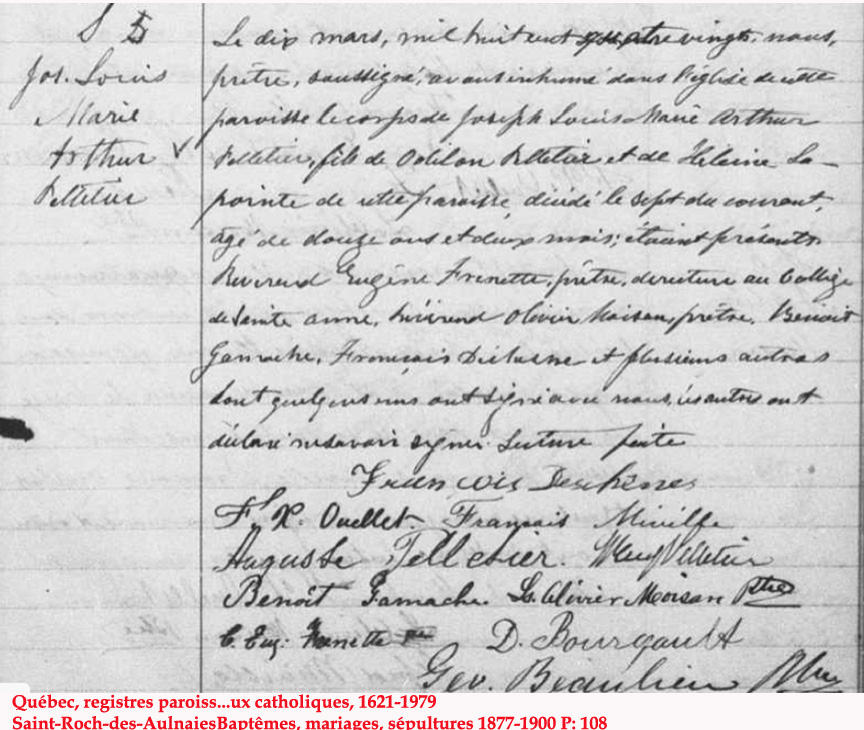 S 5
Jos. Louis
Marie
Arthur
Pelletier
Le dix mars, mil huit cent quatre vingt, nous,
prêtre, soussigné, avons inhumé dans l'église de cette
paroisse le corps de Joseph Louis Marie Arthur
Pelletier, fils de Odilon Pelletier et de Helaine La-
pointe de cette paroisse, décédé le sept du courant,
âgé de douze ans et deux mois; étaient présents
Révérend Eugène Frenette, prêtre, directeur au Collège
de Sainte Anne, Révérend Olivier Moison, prêtre, Benoit
Gamache, François Dechesne et plusieurs autres
dont quelques uns ont signé avec nous, les autres ont
déclaré ne savoir signer. Lecture faite
François Deschènes
F. X. Ouellet. François Miville
Auguste Pelletier. Pelletier
Benoît Gamache. Ls. Olivier Moisan Ptre
C. Eug. Frenette ptre D. Bourgault
Geo. Beaulieu Ptre
Québec, registres paroiss...ux catholiques, 1621-1979
Saint-Roch-des-AulnaiesBaptêmes, mariages, sépultures 1877-1900 P: 108